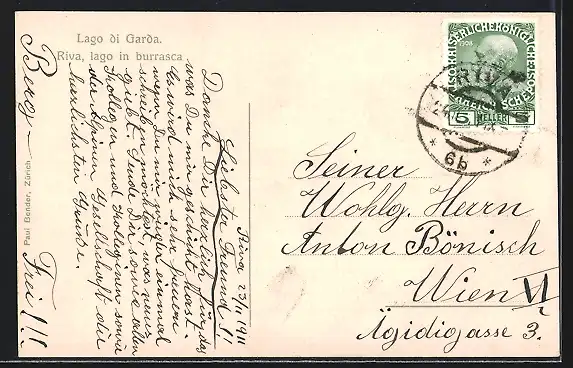 Lago di Garda.
Riva, lago in burrasca
Riva 23/11 1911
Liebster Freund!!
Danke Dir herzlich für das
was Du mir geschickt hast.
Es wird mich sehr freuen
wenn Du mir wieder einmal
schreiben möchtest, was neues
gibt. Sende Dir sowie allen
Kollegen und Kolleginnen sowie
der Alpinen Gesellschaft die
herzlichsten Grüße.
Berg — Frei!!!
Paul Bender, Zürich.
KAISERLICHE KÖNIGLICHE
1908
5 HELLER 5
RIVA
* 6b *
Seiner
Wohlg. Herrn
Anton Bönisch
Wien VI
Ägidigasse 3.